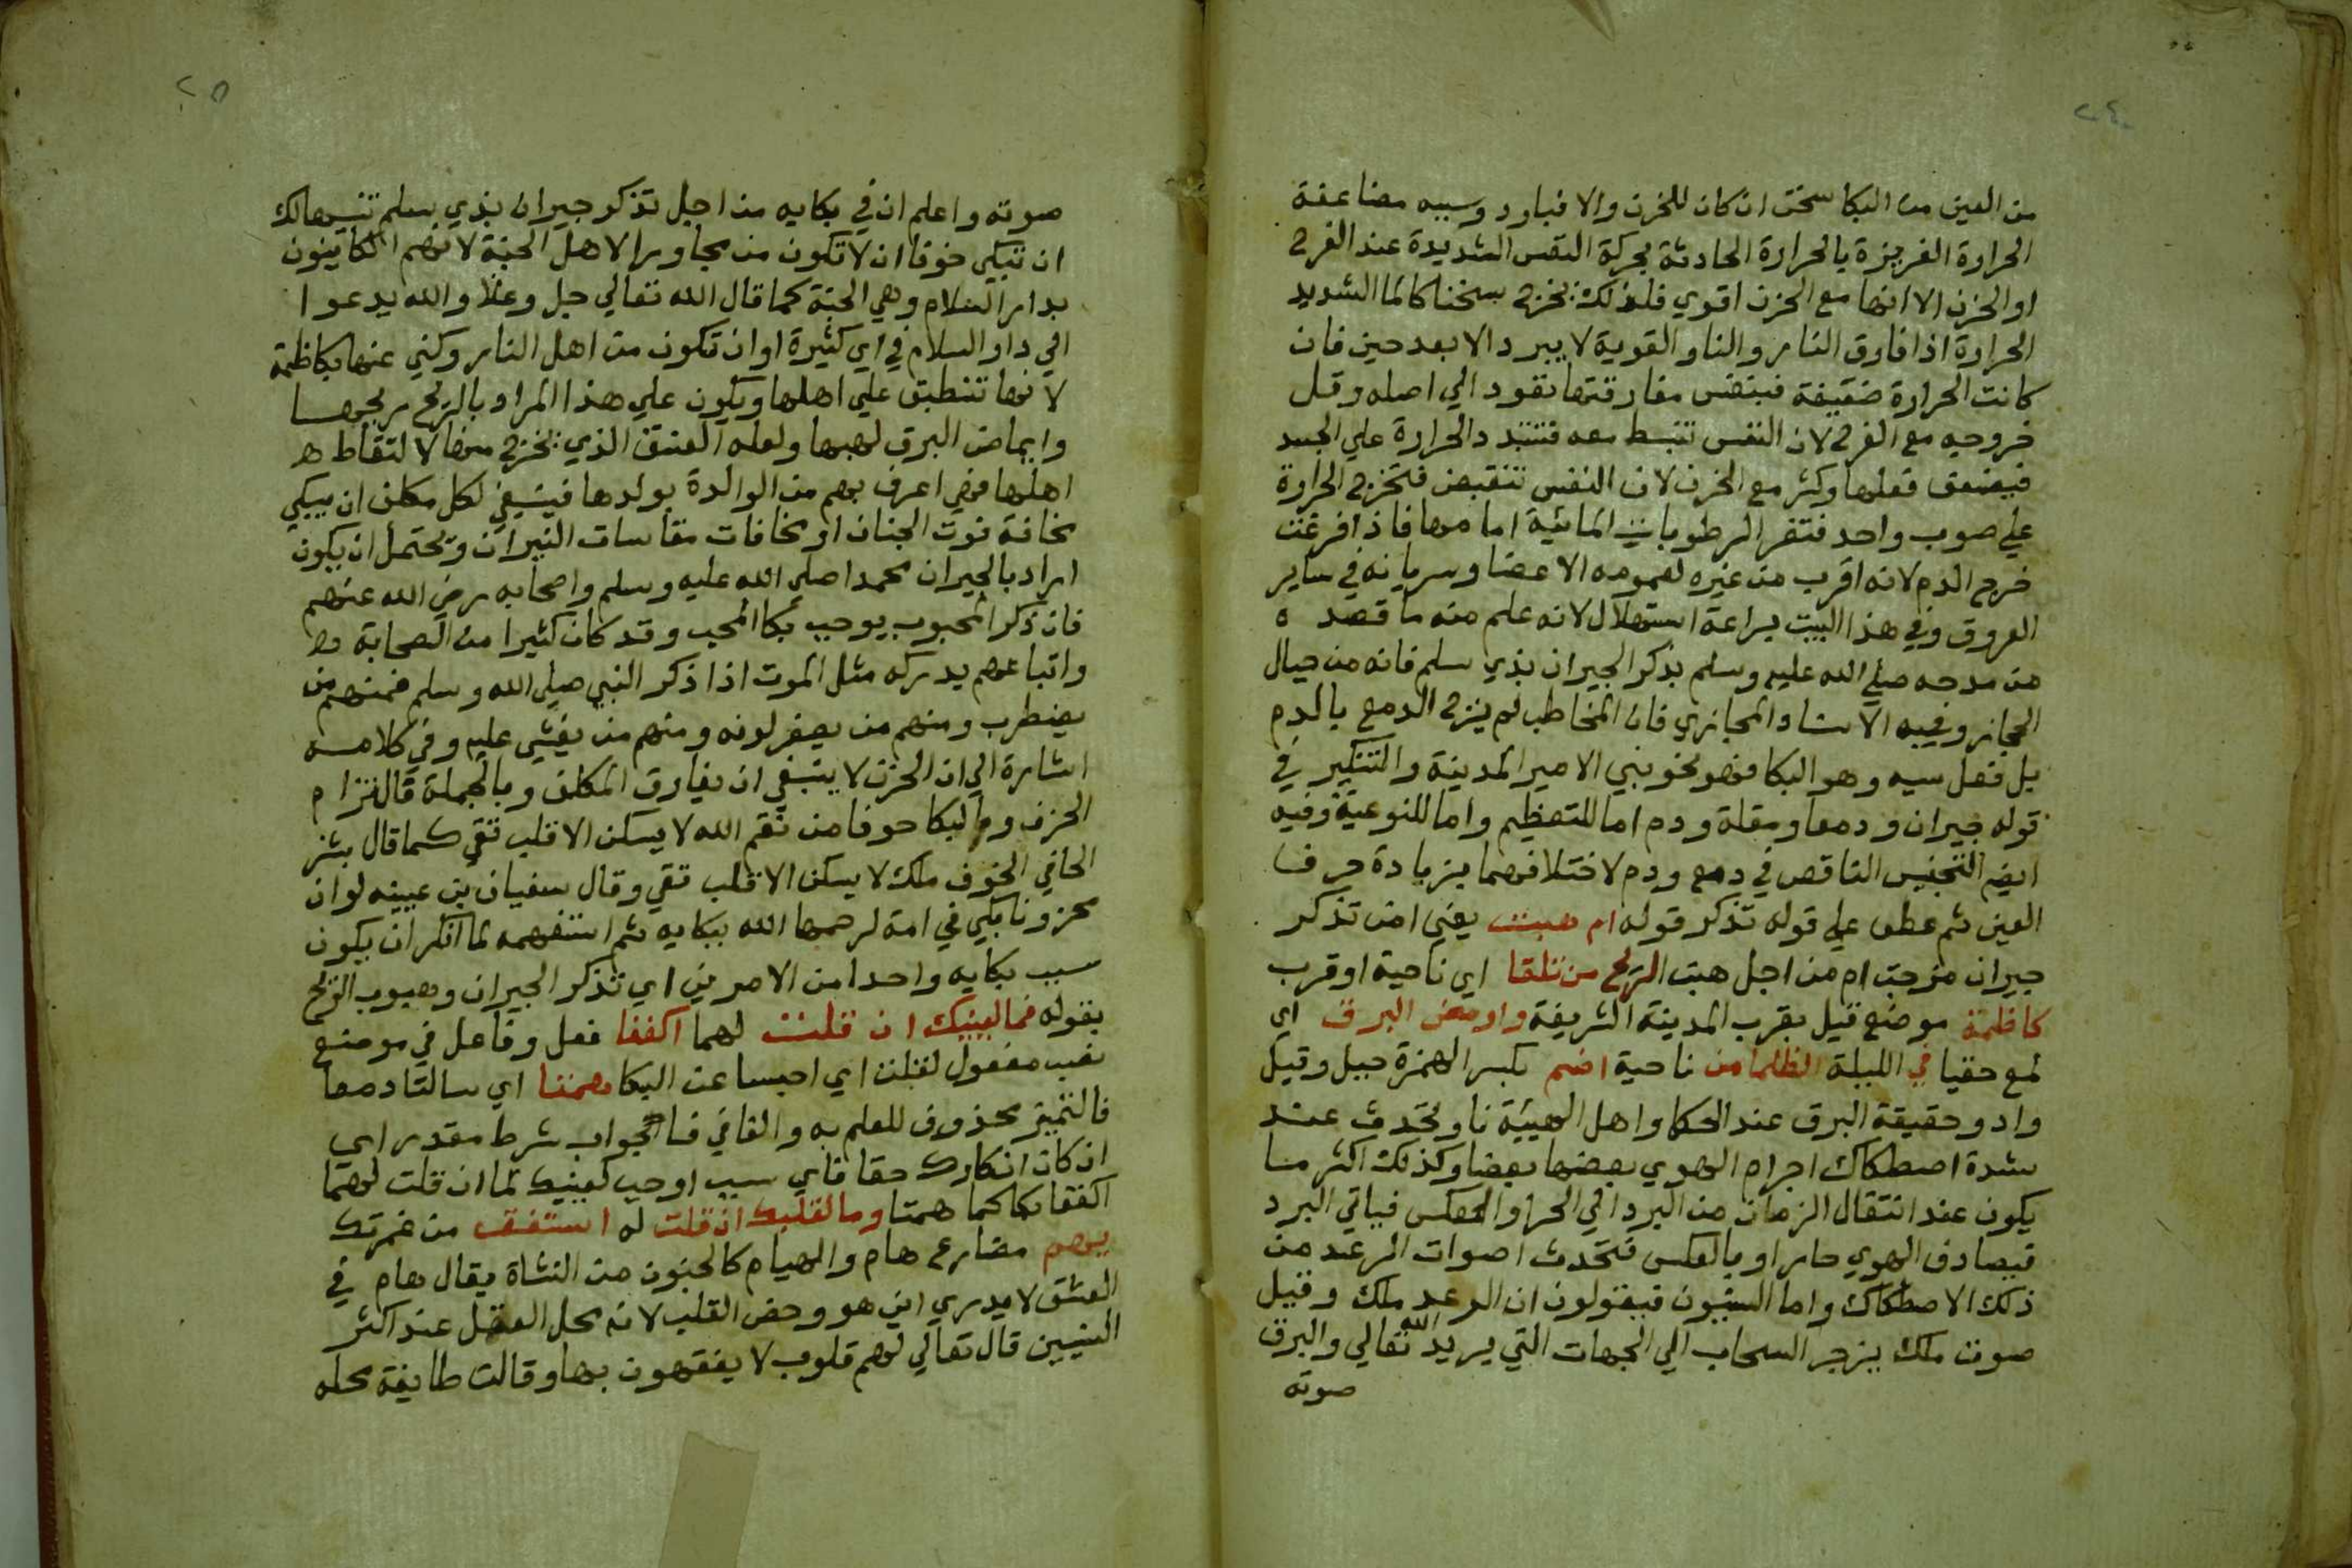 ٢٤
من العين من البكا سخن ان كان للحزن والا فبارد وسببه مضاعفة
الحرارة الغريزة بالحرارة الحادثة بحركة النفس الشديدة عند الفرح
او الحزن الا انها مع الحزن اقوي فلذلك يخرج سخنا كالما الشديد
الحرارة اذا فارق النار والنار القوية لا يبرد الا بعد حين فان
كانت الحرارة ضعيفة فبنفس مفارقتها تقود الي اصله وقل
خروجه مع الفرح لان النفس تنبسط معه فتتبد دالحرارة علي الجسد
فيضعف فعلها وكثر مع الحزن لان النفس تنقبض فتخرج الحرارة
علي صوب واحد فتفر الرطوبات المائية امامها فاذا فرغت
خرج الدم لانه اقرب من غيره لعمومه الاعضا وسريانه في ساير
العروق وفي هذا البيت براعة استهلال لانه علم منه ما قصد ه
من مدحه صلي الله عليه وسلم بذكر الجيران بذي سلم فانه من جبال
الحجاز وفيه الاسناد المجازي فان المخاطب لم يمزج الدمع بالدم
بل فعل سببه وهو البكا فهو نحو بني الامير المدينة والتنكير في
قوله جيران ودمعا ومقلة ودم اما للتعظيم واما للنوعية وفيه
ايضم التجنيس الناقص في دمع ودم لاختلافهما بزيادة حرف
العين ثم عطف علي قوله تذكر قوله ام هبت يعني امن تذكر
جيران مزجت ام من اجل هبت الريح من تلقا اي ناحية او قرب
كاظمة موضع قيل بقرب المدينة الشريفة واومض البرق اي
لمع خفيا في الليلة الظلما من ناحية اضم بكسر الهمزة جبل وقيل
واد وحقيقة البرق عند الحكما واهل الهيئة نار تحدث عند
شدة اصطكاك اجرام الهوي بعضها بعضا وكذلك اكثر ما
يكون عند انتقال الزمان من البرد الي الحر او العكس فياتي البرد
فيصادف الهوي حارا او بالعكس فتحدث اصوات الرعد من
ذلك الاصطكاك واما السنيون فيقولون ان الرعد ملك وقيل
صوت ملك يزجر السحاب الي الجهات التي يريد الله تعالي والبرق
صوته
٢٥
صوته واعلم ان في بكايه من اجل تذكر جيران بذي سلم تنبيها لك
ان تبكي خوفا ان لا تكون من مجاورا لاهل الجنة لانهم الكاينون
بدار السلام وهي الجنة كما قال الله تعالي جل وعلا والله يدعوا
الي دار السلام في اي كثيرة او ان تكون من اهل النار وكني عنها بكاظمة
لانها تنطبق علي اهلها ويكون علي هذا المراد بالريح ريحها
وايماض البرق لهبها ولعله العنق الذي يخرج منها لالتقاط ه
اهلها فهي اعرف بهم من الوالدة بولدها فينبغي لكل مكلف ان يبكي
مخافة فوت الجنان او مخافات مقاسات النيران ويحتمل ان يكون
اراد بالجيران محمدا صلي الله عليه وسلم واصحابه رضي الله عنهم
فان ذكر المحبوب يوجب بكا المحب وقد كان كثيرا من الصحابة
واتباعهم يدركه مثل الموت اذا ذكر النبي صلي الله وسلم فمنهم من
يضطرب ومنهم من يصفر لونه ومنهم من يغشي عليه وفي كلامه
اشارة الي ان الحزن لا ينبغي ان يفارق المكلف وبالجملة فالتزام
الحزن والبكا خوفا من نقم الله لا يسكن الا قلب تقي كما قال بشر
الحافي الخوف ملك لا يسكن الا قلب تقي وقال سفيان بن عيينه لو ان
محزونا بكي في امة لرحمها الله ببكايه ثم استفهمه لما انكر ان يكون
سبب بكايه واحدا من الامرين اي تذكر الجيران وهبوب الريح
بقوله فما لعينيك ان قلت لهما اكففا فعل وفاعل في موضع
نصب مفعول لقلت اي احبسا عن البكا همتا اي سالتا دمعا
فالتمييز محذوف للعلم به والفا في فما لجواب شرط مقدر اي
ان كان انكارك حقا فاي سبب اوجب لعينيك لما ان قلت لهما
اكففا بكا كما همتا وما لقلبك ان قلت له استفق من غمرتك
يهم مضارع هام والهيام كالجنون من النشاة يقال هام في
العشق لا يدري اين هو وخص القلب لانه محل العقل عند اكثر
السنيين قال تعالي لهم قلوب لا يفقهون بها وقالت طايفة محله